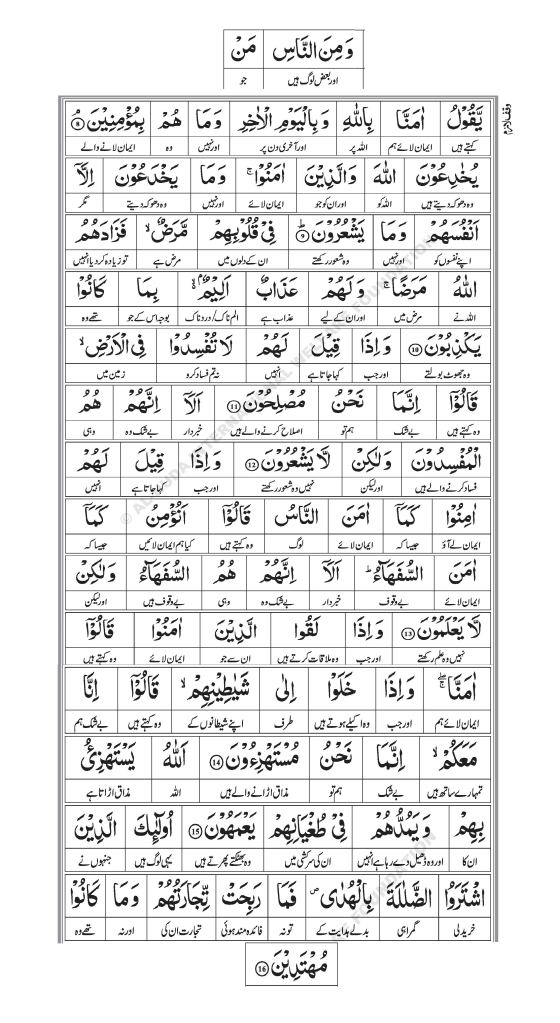 وَمِنَ النَّاسِ مَنْ
اور بعض لوگ ہیں جو
وقف لازم
يَّقُوْلُ اٰمَنَّا بِاللّٰهِ وَبِالْيَوْمِ الْاٰخِرِ وَمَا هُمْ بِمُؤْمِنِيْنَ ۘ ﴿8﴾
کہتے ہیں ایمان لائے ہم اللہ پر اور آخری دن پر اور نہیں وہ ایمان لانے والے
يُخٰدِعُوْنَ اللّٰهَ وَالَّذِيْنَ اٰمَنُوْا ۚ وَمَا يَخْدَعُوْنَ اِلَّاۤ
وہ دھوکہ دیتے ہیں اللہ کو اور ان کو جو ایمان لائے اور نہیں وہ دھوکہ دیتے مگر
اَنْفُسَهُمْ وَمَا يَشْعُرُوْنَ ؕ ﴿9﴾ فِيْ قُلُوْبِهِمْ مَّرَضٌ ۙ فَزَادَهُمُ
اپنے نفسوں کو اور نہیں وہ شعور رکھتے ان کے دلوں میں مرض ہے تو زیادہ کر دیا انہیں
اللّٰهُ مَرَضًا ۚ وَلَهُمْ عَذَابٌ اَلِيْمٌۢ ۙ بِمَا كَانُوْا
اللہ نے مرض میں اور ان کے لیے عذاب ہے المناک/دردناک بوجہ اس کے جو تھے وہ
يَكْذِبُوْنَ ﴿10﴾ وَاِذَا قِيْلَ لَهُمْ لَا تُفْسِدُوْا فِي الْاَرْضِ ۙ
وہ جھوٹ بولتے اور جب کہا جاتا ہے انہیں نہ تم فساد کرو زمین میں
قَالُوْۤا اِنَّمَا نَحْنُ مُصْلِحُوْنَ ﴿11﴾ اَلَاۤ اِنَّهُمْ هُمُ
وہ کہتے ہیں بے شک ہم تو اصلاح کرنے والے ہیں خبردار بے شک وہ وہی
الْمُفْسِدُوْنَ وَلٰكِنْ لَّا يَشْعُرُوْنَ ﴿12﴾ وَاِذَا قِيْلَ لَهُمْ
فساد کرنے والے ہیں اور لیکن نہیں وہ شعور رکھتے اور جب کہا جاتا ہے انہیں
اٰمِنُوْا كَمَاۤ اٰمَنَ النَّاسُ قَالُوْۤا اَنُؤْمِنُ كَمَاۤ
ایمان لے آؤ جیسا کہ ایمان لائے لوگ وہ کہتے ہیں کیا ہم ایمان لائیں جیسا کہ
اٰمَنَ السُّفَهَآءُ ؕ اَلَاۤ اِنَّهُمْ هُمُ السُّفَهَآءُ وَلٰكِنْ
ایمان لائے بے وقوف خبردار بے شک وہ وہی بے وقوف ہیں اور لیکن
لَّا يَعْلَمُوْنَ ﴿13﴾ وَاِذَا لَقُوا الَّذِيْنَ اٰمَنُوْا قَالُوْۤا
نہیں وہ علم رکھتے اور جب وہ ملاقات کرتے ہیں ان سے جو ایمان لائے وہ کہتے ہیں
اٰمَنَّا ۖۚ وَاِذَا خَلَوْا اِلٰى شَيٰطِيْنِهِمْ ۙ قَالُوْۤا اِنَّا
ایمان لائے ہم اور جب وہ اکیلے ہوتے ہیں طرف اپنے شیطانوں کے وہ کہتے ہیں بے شک ہم
مَعَكُمْ ۙ اِنَّمَا نَحْنُ مُسْتَهْزِءُوْنَ ﴿14﴾ اَللّٰهُ يَسْتَهْزِئُ
تمہارے ساتھ ہیں بے شک ہم تو مذاق اڑانے والے ہیں اللہ مذاق اڑاتا ہے
بِهِمْ وَيَمُدُّهُمْ فِيْ طُغْيَانِهِمْ يَعْمَهُوْنَ ﴿15﴾ اُولٰٓئِكَ الَّذِيْنَ
ان کا اور وہ ڈھیل دے رہا ہے انہیں ان کی سرکشی میں وہ بھٹکتے پھرتے ہیں یہی لوگ ہیں جنہوں نے
اشْتَرَوُا الضَّلٰلَةَ بِالْهُدٰى ۪ فَمَا رَبِحَتْ تِّجَارَتُهُمْ وَمَا كَانُوْا
خرید لی گمراہی بدلے ہدایت کے تو نہ فائدہ مند ہوئی تجارت ان کی اور نہ تھے وہ
مُهْتَدِيْنَ ﴿16﴾